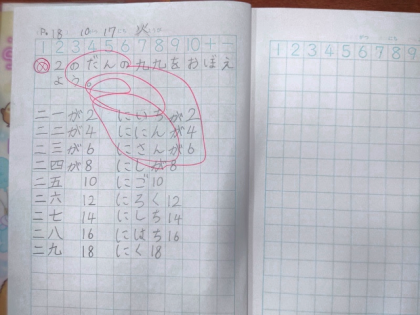 P. 18 10-17 火
1 2 3 4 5 6 7 8 9 10 十一
め 2のだんの九九をおぼえ
よう。
二一が2 にいちが2
二二が4 ににんが4
二三が6 にさんが6
二四が8 にしが8
二五 10 にご10
二六 12 にろく12
二七 14 にしち14
二八 16 にはち16
二九 18 にく18
1 2 3 4 5 6 7 8 9